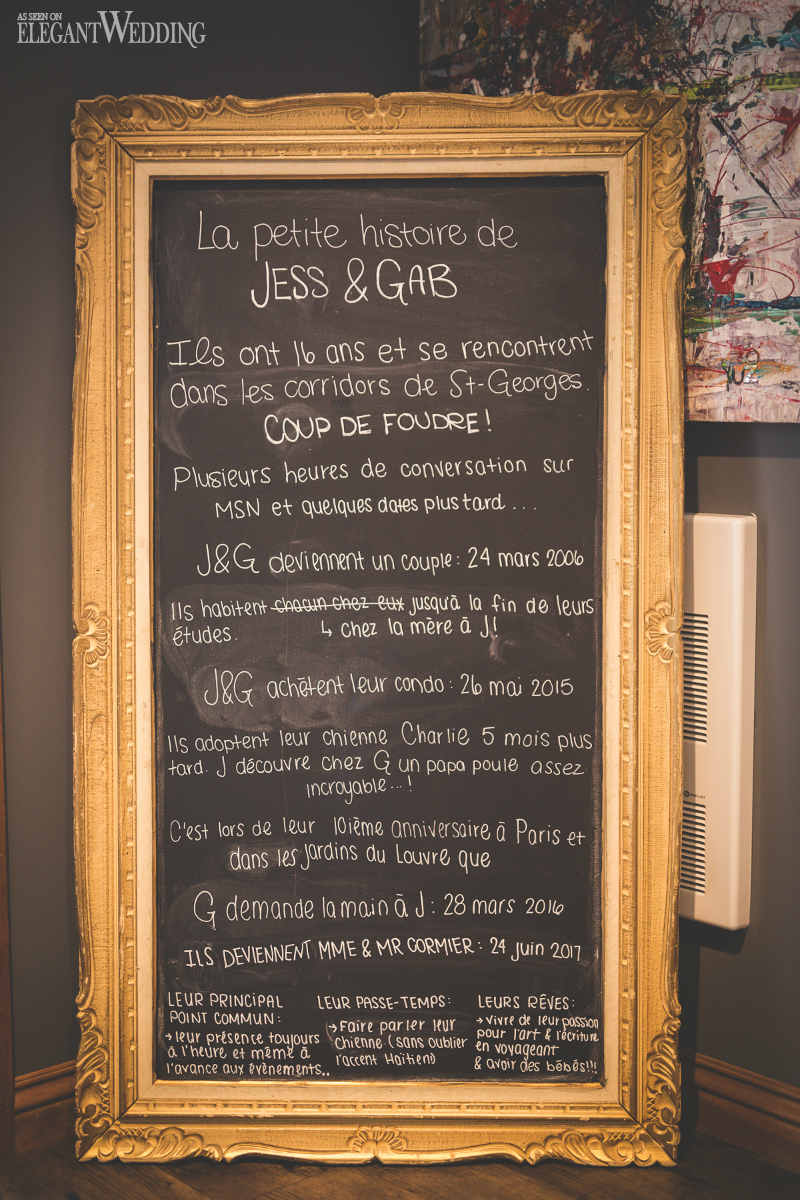 AS SEEN ON
ELEGANTWEDDING
La petite histoire de
JESS & GAB
Ils ont 16 ans et se rencontrent
dans les corridors de St-Georges.
COUP DE FOUDRE!
Plusieurs heures de conversation sur
MSN et quelques dates plus tard ...
J&G deviennent un couple: 24 mars 2006
Ils habitent chacun chez eux jusqu'à la fin de leurs
études. ↳ chez la mère à J!
J&G achètent leur condo: 26 mai 2015
Ils adoptent leur chienne Charlie 5 mois plus
tard. J découvre chez G un papa poule assez
incroyable...!
C'est lors de leur 10ième anniversaire à Paris et
dans les jardins du Louvre que
G demande la main à J: 28 mars 2016
ILS DEVIENNENT MME & MR CORMIER: 24 juin 2017
LEUR PRINCIPAL
POINT COMMUN:
→ leur présence toujours
à l'heure et même à
l'avance aux évènements..
LEUR PASSE-TEMPS:
→ Faire parler leur
chienne (sans oublier
l'accent Haïtien)
LEURS RÊVES:
→ Vivre de leur passion
pour l'art & l'écriture
en voyageant
& avoir des bébés!!!